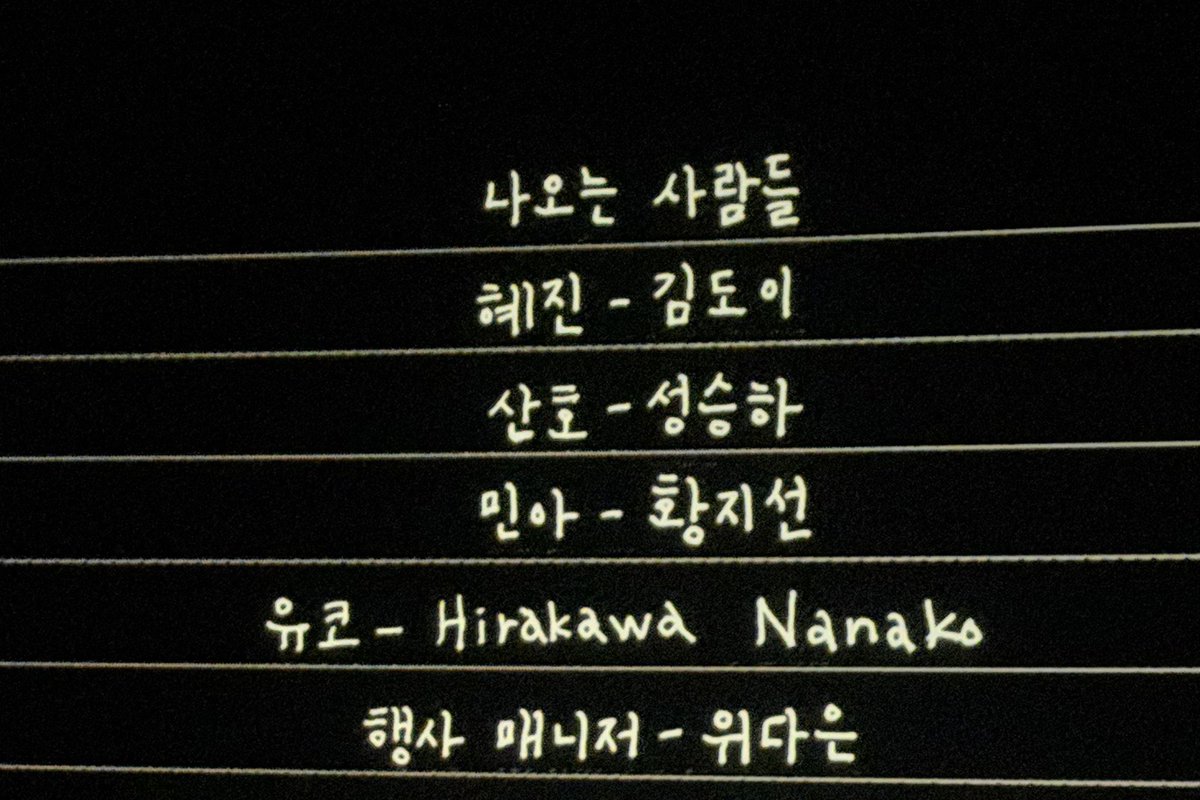 나오는 사람들
혜진 - 김도이
산호 - 성승하
민아 - 황지선
유코 - Hirakawa Nanako
행사 매니저 - 위다은